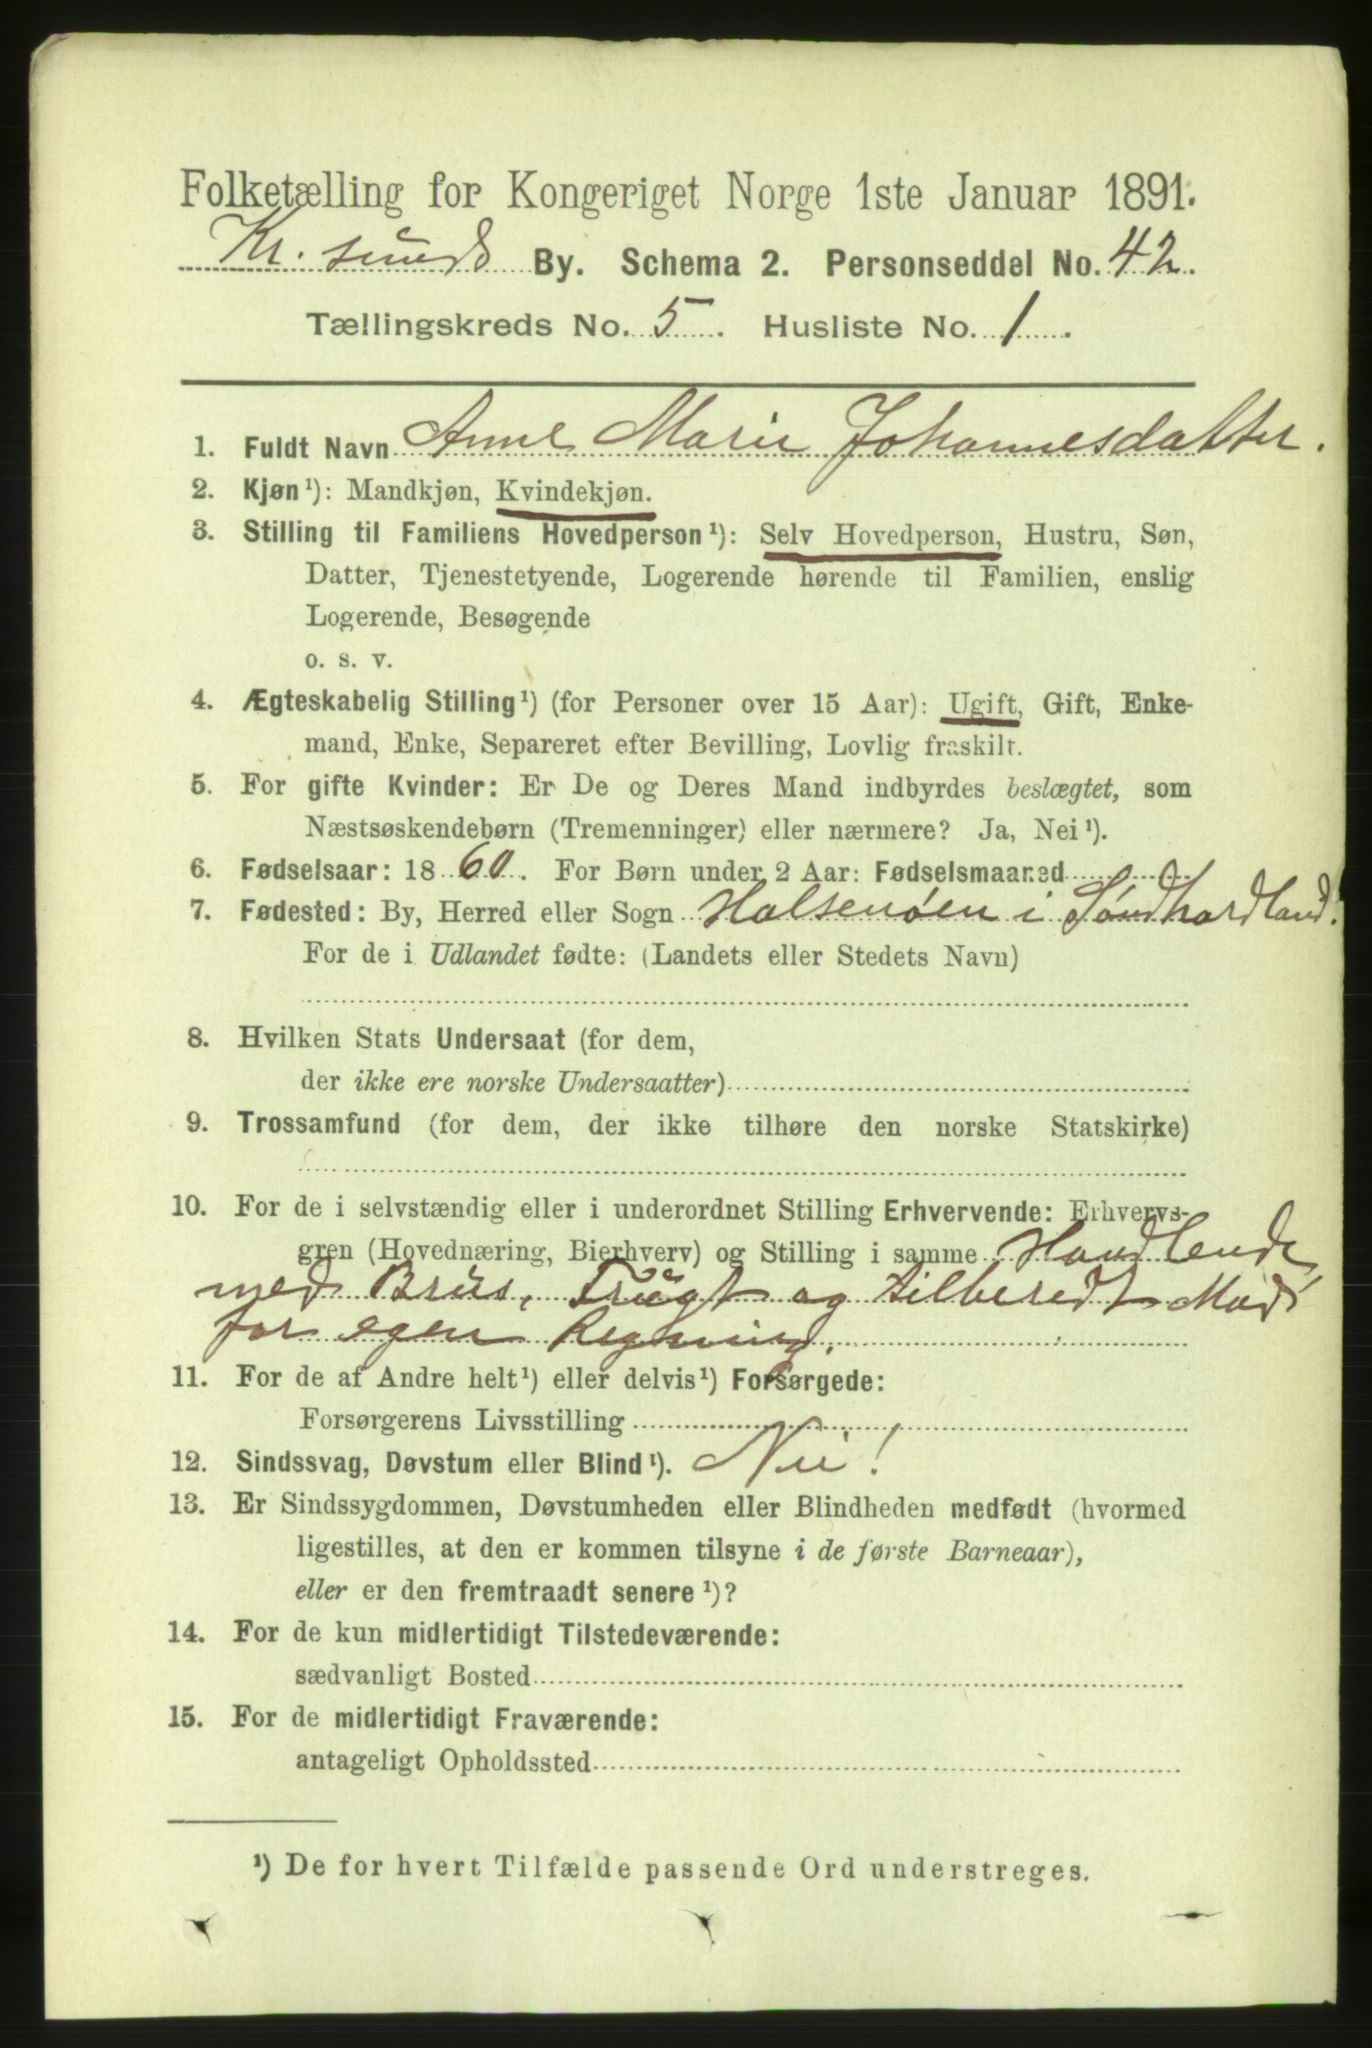 Folketælling for Kongeriget Norge 1ste Januar 1891.
Kr. sunds By. Schema 2. Personseddel No. 42.
Tællingskreds No. 5. Husliste No. 1.
1. Fuldt Navn Anne Marie Johannesdatter.
2. Kjøn ¹): Mandkjøn, Kvindekjøn.
3. Stilling til Familiens Hovedperson ¹): Selv Hovedperson, Hustru, Søn,
Datter, Tjenestetyende, Logerende hørende til Familien, enslig
Logerende, Besøgende
o. s. v.
4. Ægteskabelig Stilling ¹) (for Personer over 15 Aar): Ugift, Gift, Enke-
mand, Enke, Separeret efter Bevilling, Lovlig fraskilt.
5. For gifte Kvinder: Er De og Deres Mand indbyrdes beslægtet, som
Næstsøskendebørn (Tremenninger) eller nærmere? Ja, Nei ¹).
6. Fødselsaar: 1860. For Børn under 2 Aar: Fødselsmaaned
7. Fødested: By, Herred eller Sogn Halsenøen i Søndhordland.
For de i Udlandet fødte: (Landets eller Stedets Navn)
8. Hvilken Stats Undersaat (for dem,
der ikke ere norske Undersaatter)
9. Trossamfund (for dem, der ikke tilhøre den norske Statskirke)
10. For de i selvstændig eller i underordnet Stilling Erhvervende: Erhvervs-
gren (Hovednæring, Bierhverv) og Stilling i samme Handlende
med Brus, Frugt og tilberedt Mad
for egen Regning.
11. For de af Andre helt ¹) eller delvis ¹) Forsørgede:
Forsørgerens Livsstilling
12. Sindssvag, Døvstum eller Blind ¹). Nei!
13. Er Sindssygdommen, Døvstumheden eller Blindheden medfødt (hvormed
ligestilles, at den er kommen tilsyne i de første Barneaar),
eller er den fremtraadt senere ¹)?
14. For de kun midlertidigt Tilstedeværende:
sædvanligt Bosted
15. For de midlertidigt Fraværende:
antageligt Opholdssted
¹) De for hvert Tilfælde passende Ord understreges.